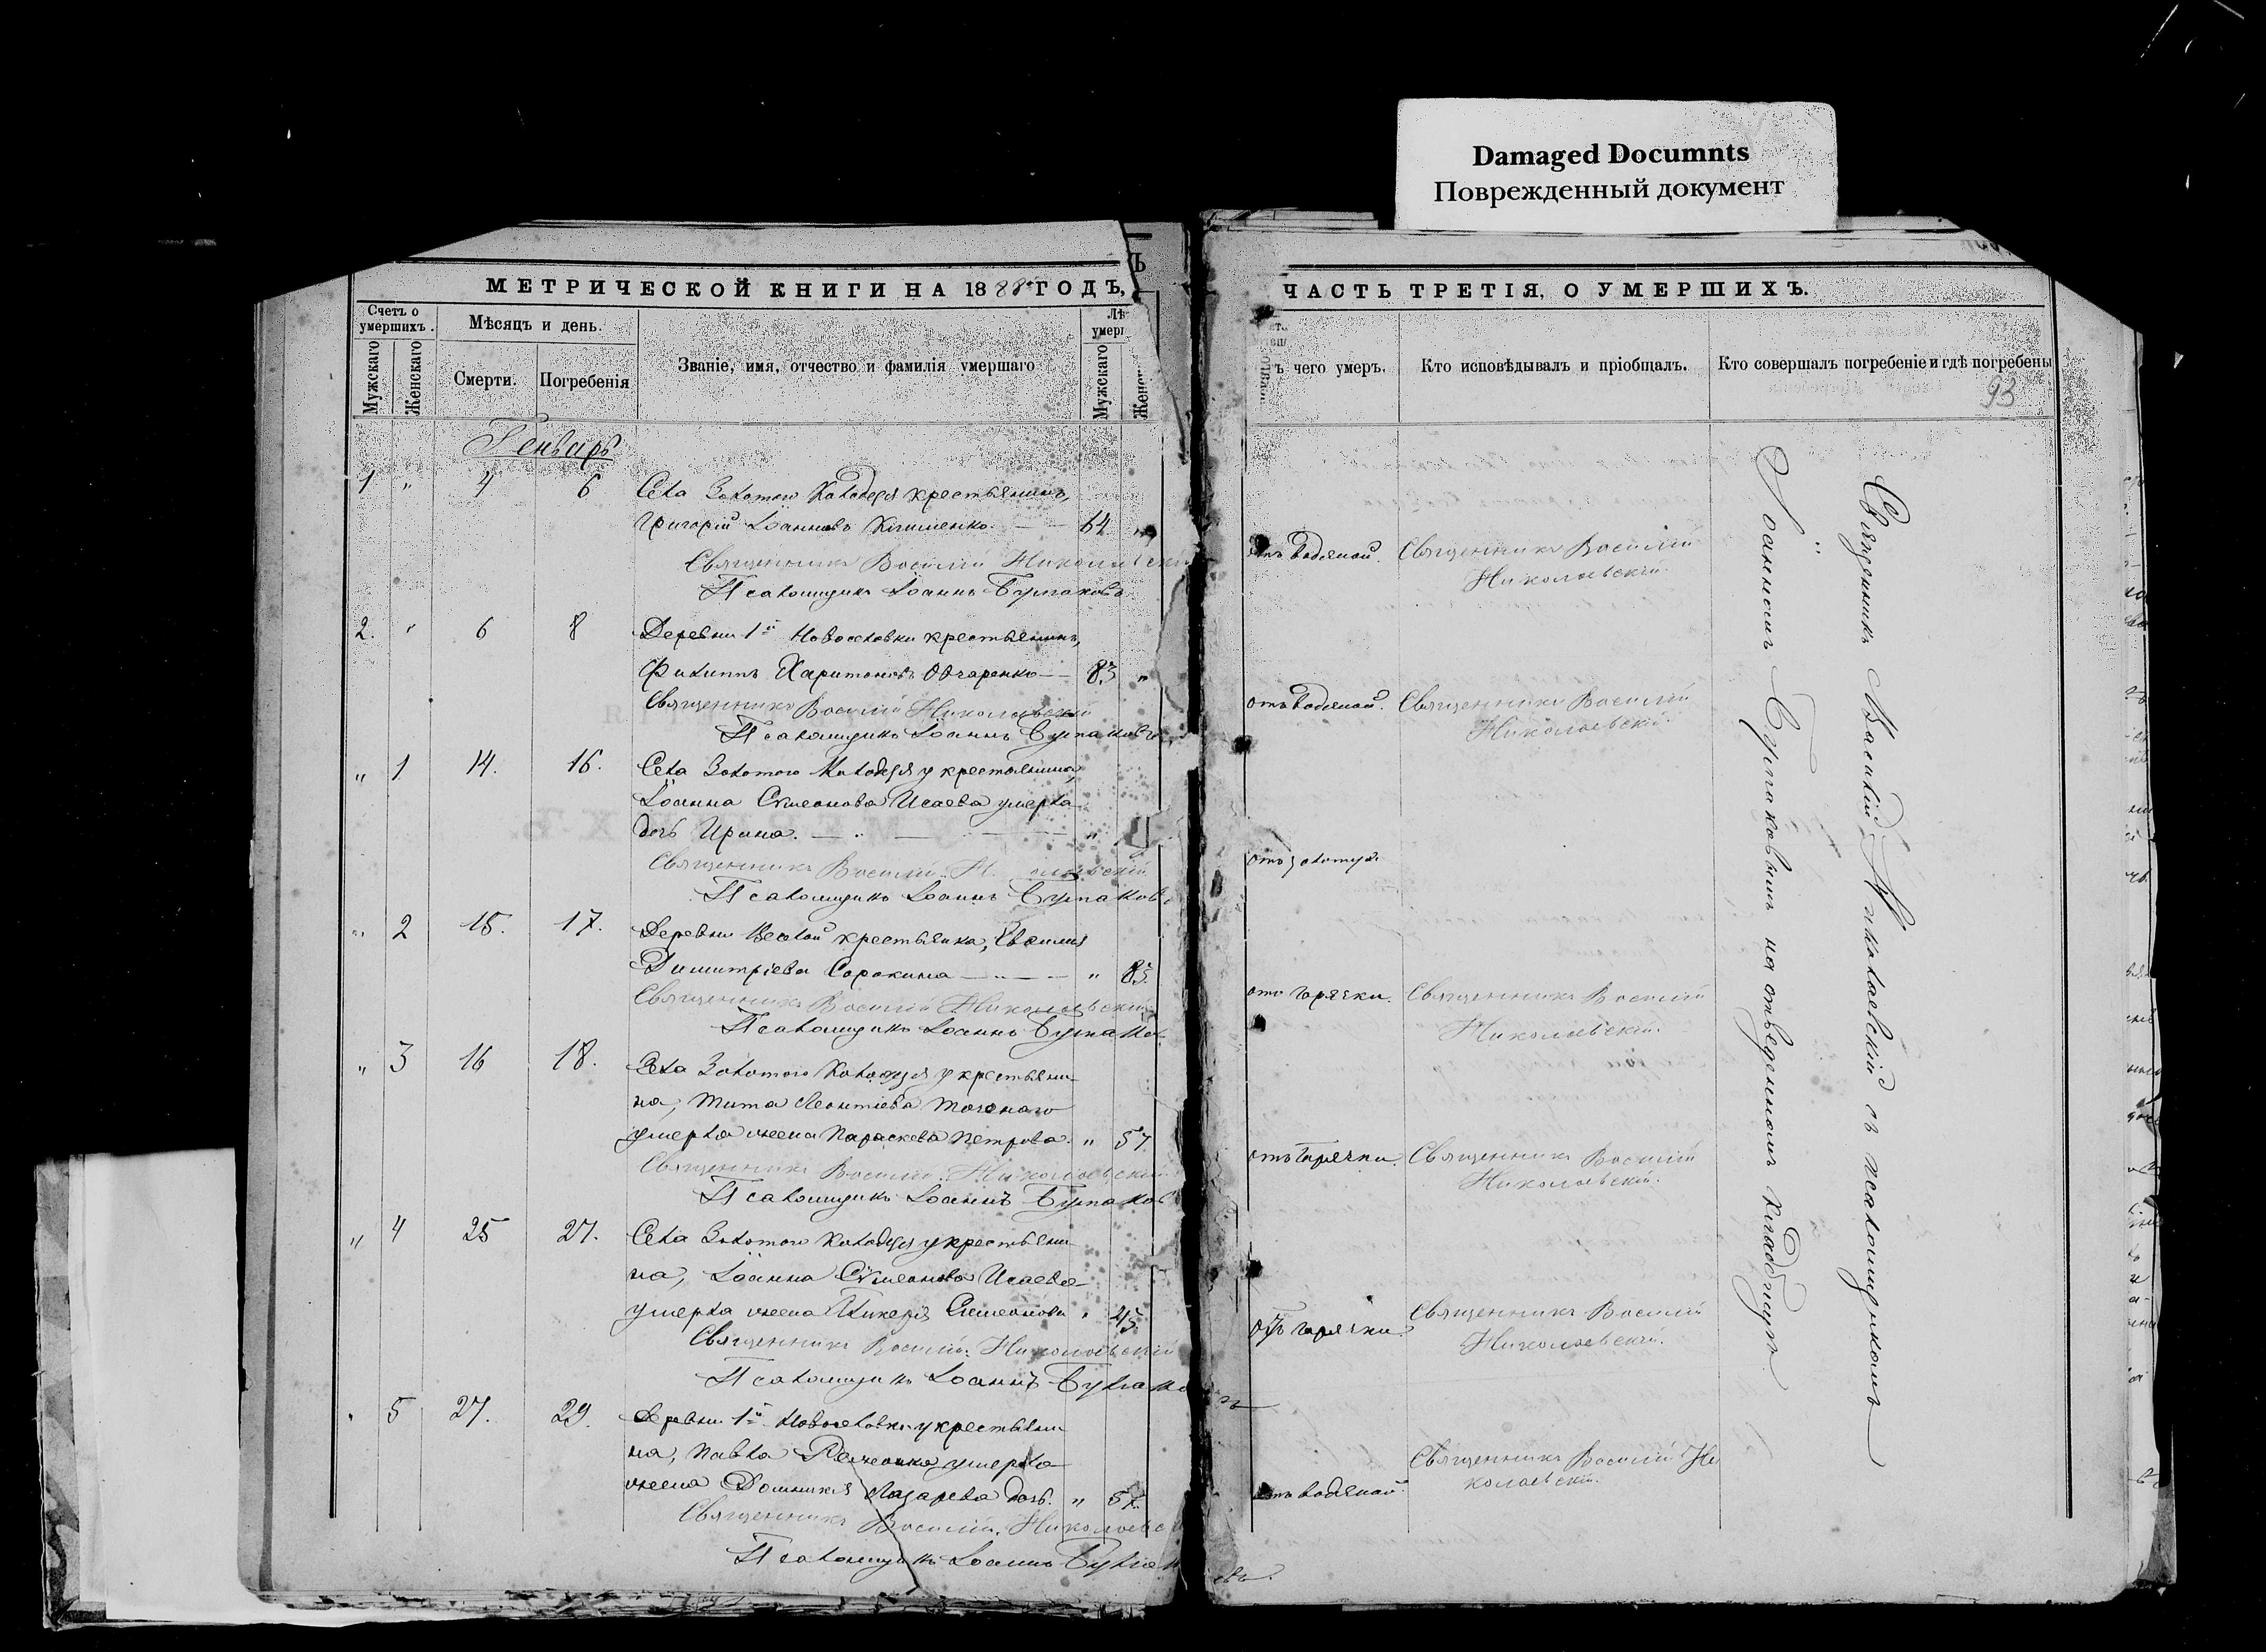 Damaged Documnts
Поврежденный документ
МЕТРИЧЕСКОЙ КНИГИ НА 1888 ГОДЪ,
Счетъ о умершихъ.
Мужскаго
Женскаго
Мѣсяцъ и день.
Смерти.
Погребенія
Званіе, имя, отчество и фамилія умершаго
Мужскаго
Генварь
1 " 4 6 Села Золотого Колодезя крестьянинъ,
Григорій Іоанновъ Клименко. — — 64 "
Священникъ Василій Николаевскій
Псаломщикъ Іоаннъ Булгаковъ
2. " 6 8 Деревни 1й Новоселовки крестьянинъ,
Филиппъ Харитоновъ Овчаренко — 83 "
Священникъ Василій Николаевскій
Псаломщикъ Іоаннъ Булгаковъ
" 1 14. 16. Села Золотого Колодезя у крестьянина,
Іоанна Симеонова Исаева умерла
дочь Ирина. — "
Священникъ Василій
Псаломщикъ Іоаннъ Булгаковъ
" 2 15. 17. Деревни Веселой крестьянка,
Димитріева Сорокина — " — " 85
Священникъ Василій Николаевскій
Псаломщикъ Іоаннъ Булгаков
" 3 16 18. Села Золотого Колодезя у крестьяни-
на, Тита Леонтіева
умерла жена Параскева Петрова. " 57
Священникъ Василій Николаевскій
Псаломщикъ Іоаннъ Булгаков
" 4 25 27. Села Золотого Колодезя у крестьяни-
на, Іоанна Симеонова Исаева
умерла жена Гликерія Симеонова " 45
Священникъ Василій Николаевскій
Псаломщикъ Іоаннъ Булгако
" 5 27. 29. Деревни 1й Новоселовки у крестьяни-
на, Павла умерла
жена Домникія Лазарева дочь. " 57.
Священникъ Василій Николаевск
Псаломщикъ Іоаннъ Булгак
ЧАСТЬ ТРЕТІЯ, О УМЕРШИХЪ.
ъ чего умеръ.
Кто исповѣдывалъ и пріобщалъ.
Кто совершалъ погребеніе и гдѣ погребены
93
отъ водяной. Священникъ Василій
Николаевскій.
отъ водяной. Священникъ Василій
Николаевскій.
отъ золотухи
отъ горячки. Священникъ Василій
Николаевскій.
отъ горячки. Священникъ Василій
Николаевскій.
отъ горячки. Священникъ Василій
Николаевскій.
отъ водяной. Священникъ Василій Ни
колаевскій.
Священникъ Василій Николаевскій съ псаломщикомъ
Іоанномъ Булгаковымъ на отведенномъ кладбищѣ